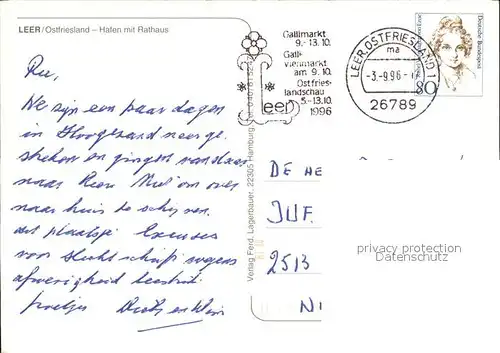 LEER/Ostfriesland – Hafen mit Rathaus
We zijn een paar dagen
in Hoogezand neerge-
streken en gingen vandaar
naar Leer. Niet om over
naar huis te schrijven.
dit plaatsje. Excuses
voor slecht schrift wegens
afwezigheid leesbril
groetjes
Verlag Ferd. Lagerbauer, 22305 Hamburg
Gallimarkt
9.-13.10.
Galli
viehmarkt
am 9.10.
Ostfries-
landschau
5.-13.10.
1996
leer
LEER, OSTFRIESLAND 1
ma
-3.-9.96.-
26789
80
Deutsche Bundespost
DE HE
JUF.
2513
NI
privacy protection
Datenschutz